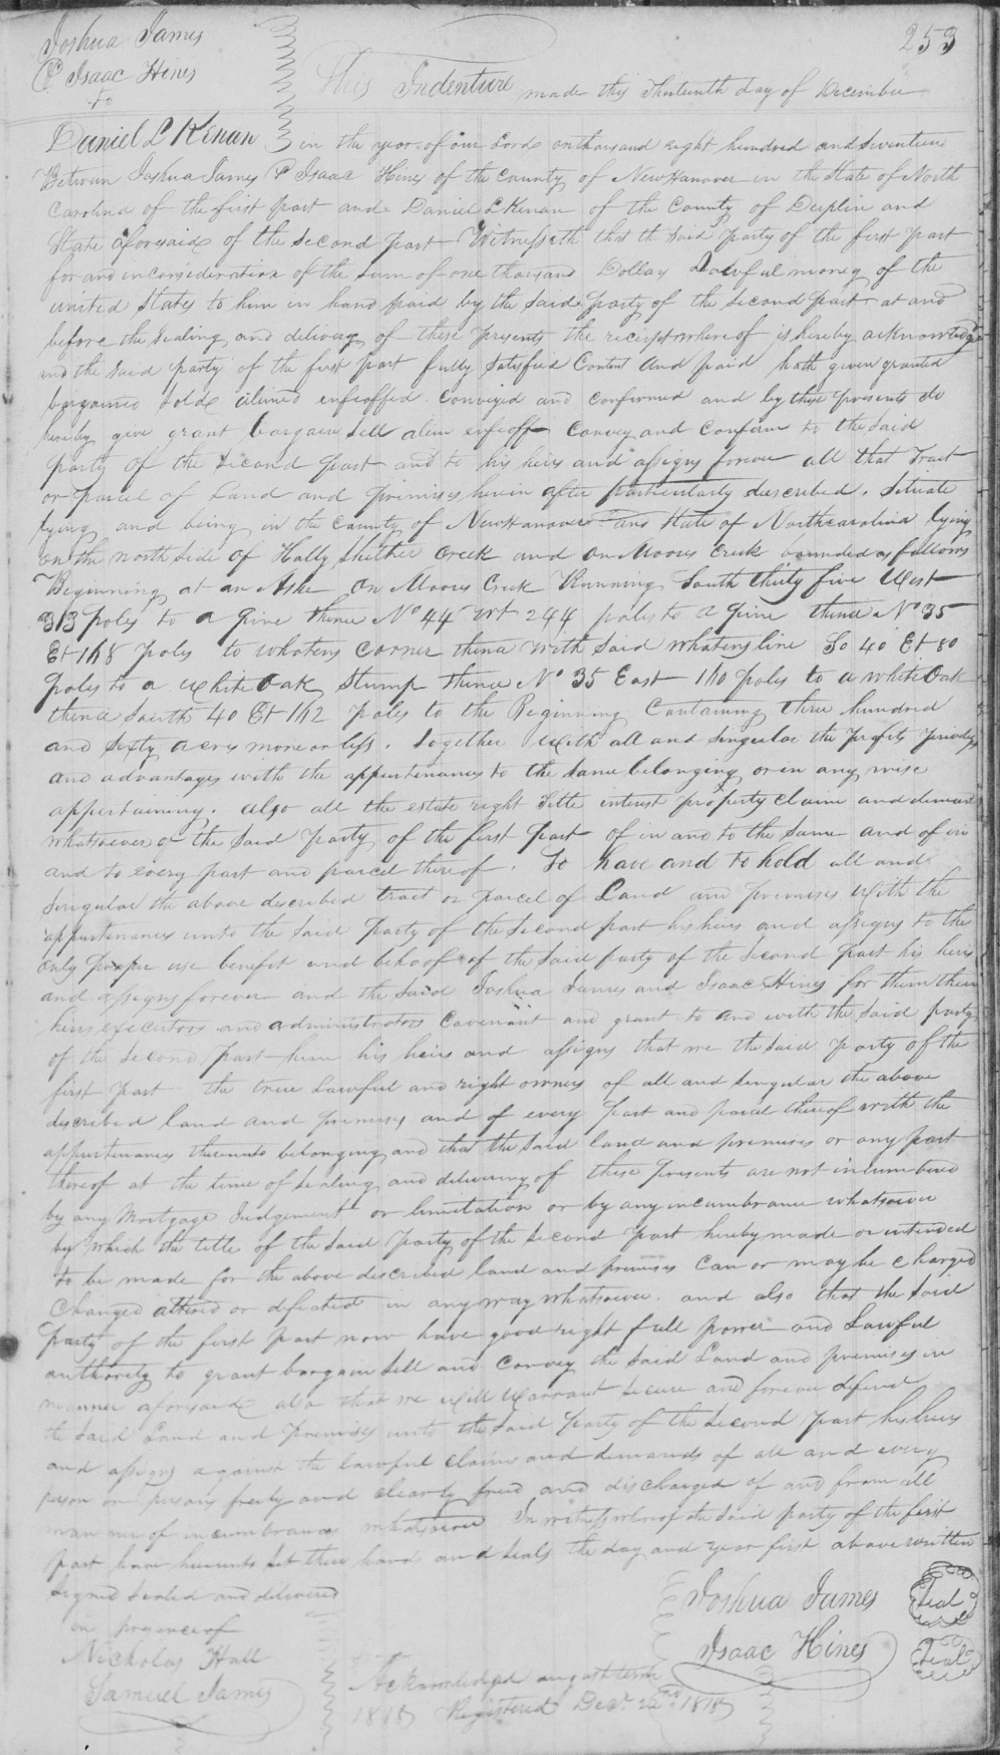 253
Joshua James
& Isaac Hines
to
Daniel L Kenan
This Indenture made this Thirteenth day of December
in the year of our Lord onthousand eight hundred and Seventeen
Between Joshua James & Isaac Hines of the County of NewHanover in the State of North
Carolina of the first part and Daniel L Kenan of the County of Duplin and
State aforesaid of the Second part Witnesseth that th Said party of the first part
for and in consideration of the Sum of one thousand Dollars Lawful money of the
united States to him in hand paid by the Said party of the Second part at and
before the Sealing and delivery of these presents the receipt whereof is hereby acknowledg
and the Said party of the first part fully Satisfied Content and paid hath given granted
bargained Sold aliened enfeoffed Conveyed and confirmed and by these presents do
hereby give grant bargain Sell alien enfeoff Convey and Confirm to the Said
party of the Second part and to his heirs and assigns forever all that Tract
or parcel of Land and premises herein after particularly described. Situate
lying and being in the County of NewHanover and State of Northcarolina lying
on the north Side of Holly Shelter Creek and on Moores Creek bounded as follows
Beginning at an Ashe on Moores Creek Running South thirty five West
313 poles to a pine thence No 44 Wt 244 poles to a pine thence No 35
Et 168 poles to whatens corner thence with Said whatens line So 40 Et 80
poles to a white Oak Stump thence No 35 East 160 poles to a white Oak
thence South 40 Et 162 poles to the Beginning Containing three hundred
and Sixty acres more or less. Together with all and Singular the profits priviledges
and advantages with the appurtenances to the Same belonging or in any wise
appertaining. also all the estate right Title interest property claim and demand
whatsoever of the Said party of the first part of in and to the Same and of in
and to every part and parcel thereof. To have and to hold all and
Singular the above described tract or parcel of Land and premises with the
appurtenances unto the Said party of the Second part his heirs and assigns to the
only proper use benefit and behoof of the Said party of the Second part his heirs
and assigns forever and the Said Joshua James and Isaac Hines for them their
heirs executors and administrators Covenant and grant to and with the Said party
of the Second part him his heirs and assigns that we the Said party of the
first part the true Lawful and right owners of all and Singular the above
described land and premises and of every part and parcel thereof with the
appurtenances thereunto belonging and that the Said land and premises or any part
thereof at the time of Sealing and delivering of these presents are not incumbered
by any Mortgage Judgement or limitation or by any incumbrance whatsoever
by which the title of the Said Party of the Second part hereby made or intended
to be made for the above described land and premises Can or may be charged
Changed altered or defeated in any way whatsoever. and also that the Said
party of the first part now have good right full power and Lawful
authority to grant bargain Sell and Convey the Said Land and premises in
manner aforesaid also that we will Warrant Secure and forever defend
the Said Land and premises unto the Said party of the Second part his heirs
and assigns against the lawful claims and demands of all and every
person or persons freely and clearly freed and discharged of and from all
manner of incumbrances whatsoever In witness whereof the Said party of the first
part have hereunto Set their hand and Seals the day and year first above written
Signed Sealed and delivered
in presence of
Nicholas Hall
Samuel James
Joshua James Seal
Isaac Hines Seal
Acknowledged august term
1818 Registered Decr 22nd 1818